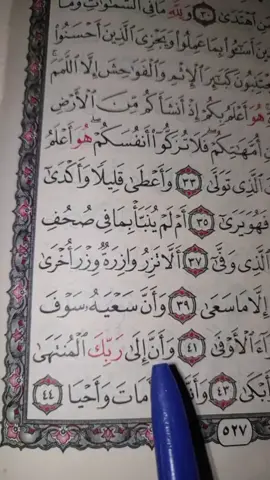 مَنِ ٱهْتَدَىٰ ٣٠ وَلِلَّهِ مَا فِي ٱلسَّمَٰوَٰتِ وَمَا
ٱلَّذِينَ أَسَٰٓـُٔوا۟ بِمَا عَمِلُوا۟ وَيَجْزِيَ ٱلَّذِينَ أَحْسَنُوا۟
يَجْتَنِبُونَ كَبَٰٓئِرَ ٱلْإِثْمِ وَٱلْفَوَٰحِشَ إِلَّا ٱللَّمَمَ
هُوَ أَعْلَمُ بِكُمْ إِذْ أَنشَأَكُم مِّنَ ٱلْأَرْضِ
أُمَّهَٰتِكُمْ فَلَا تُزَكُّوٓا۟ أَنفُسَكُمْ هُوَ أَعْلَمُ
ٱلَّذِي تَوَلَّىٰ ٣٣ وَأَعْطَىٰ قَلِيلًا وَأَكْدَىٰٓ
فَهُوَ يَرَىٰٓ ٣٥ أَمْ لَمْ يُنَبَّأْ بِمَا فِي صُحُفِ
ٱلَّذِي وَفَّىٰٓ ٣٧ أَلَّا تَزِرُ وَازِرَةٌ وِزْرَ أُخْرَىٰ
إِلَّا مَا سَعَىٰ ٣٩ وَأَنَّ سَعْيَهُۥ سَوْفَ
ٱلْأَوْفَىٰ ٤١ وَأَنَّ إِلَىٰ رَبِّكَ ٱلْمُنتَهَىٰ
٤٣ أَمَاتَ وَأَحْيَا ٤٤
٥٢٧